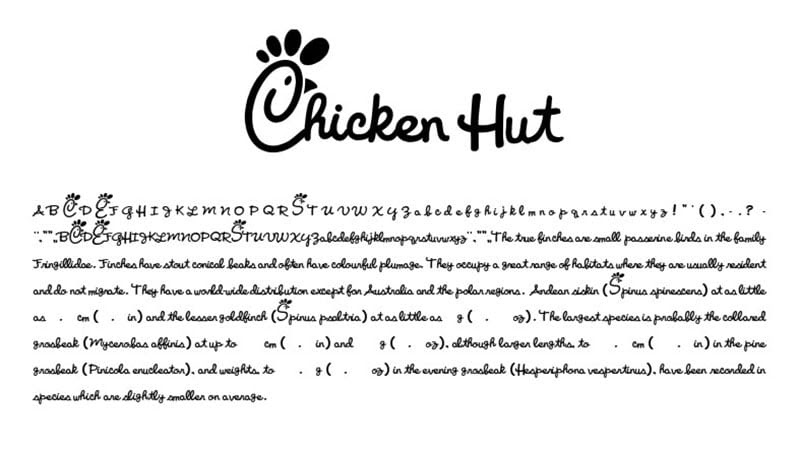 Chicken Hut
A B C D E F G H I J K L M N O P Q R S T U V W X Y Z a b c d e f g h i j k l m n o p q r s t u v w x y z ! " ' ( ) , - . ? -
".""„BCDEFGHIJKLMNOPQRSTUVWXYZabcdefghijklmnopqrstuvwxyz".""„The true finches are small passerine birds in the family
Fringillidae. Finches have stout conical beaks and often have colourful plumage. They occupy a great range of habitats where they are usually resident
and do not migrate. They have a world-wide distribution except for Australia and the polar regions. Andean siskin (Spinus spinescens) at as little
as . cm ( . in) and the lesser goldfinch (Spinus psaltria) at as little as g ( . oz). The largest species is probably the collared
grosbeak (Mycerobas affinis) at up to cm ( . in) and g ( . oz), although larger lengths, to . cm ( . in) in the pine
grosbeak (Pinicola enucleator), and weights, to . g ( . oz) in the evening grosbeak (Hesperiphona vespertinus), have been recorded in
species which are slightly smaller on average.